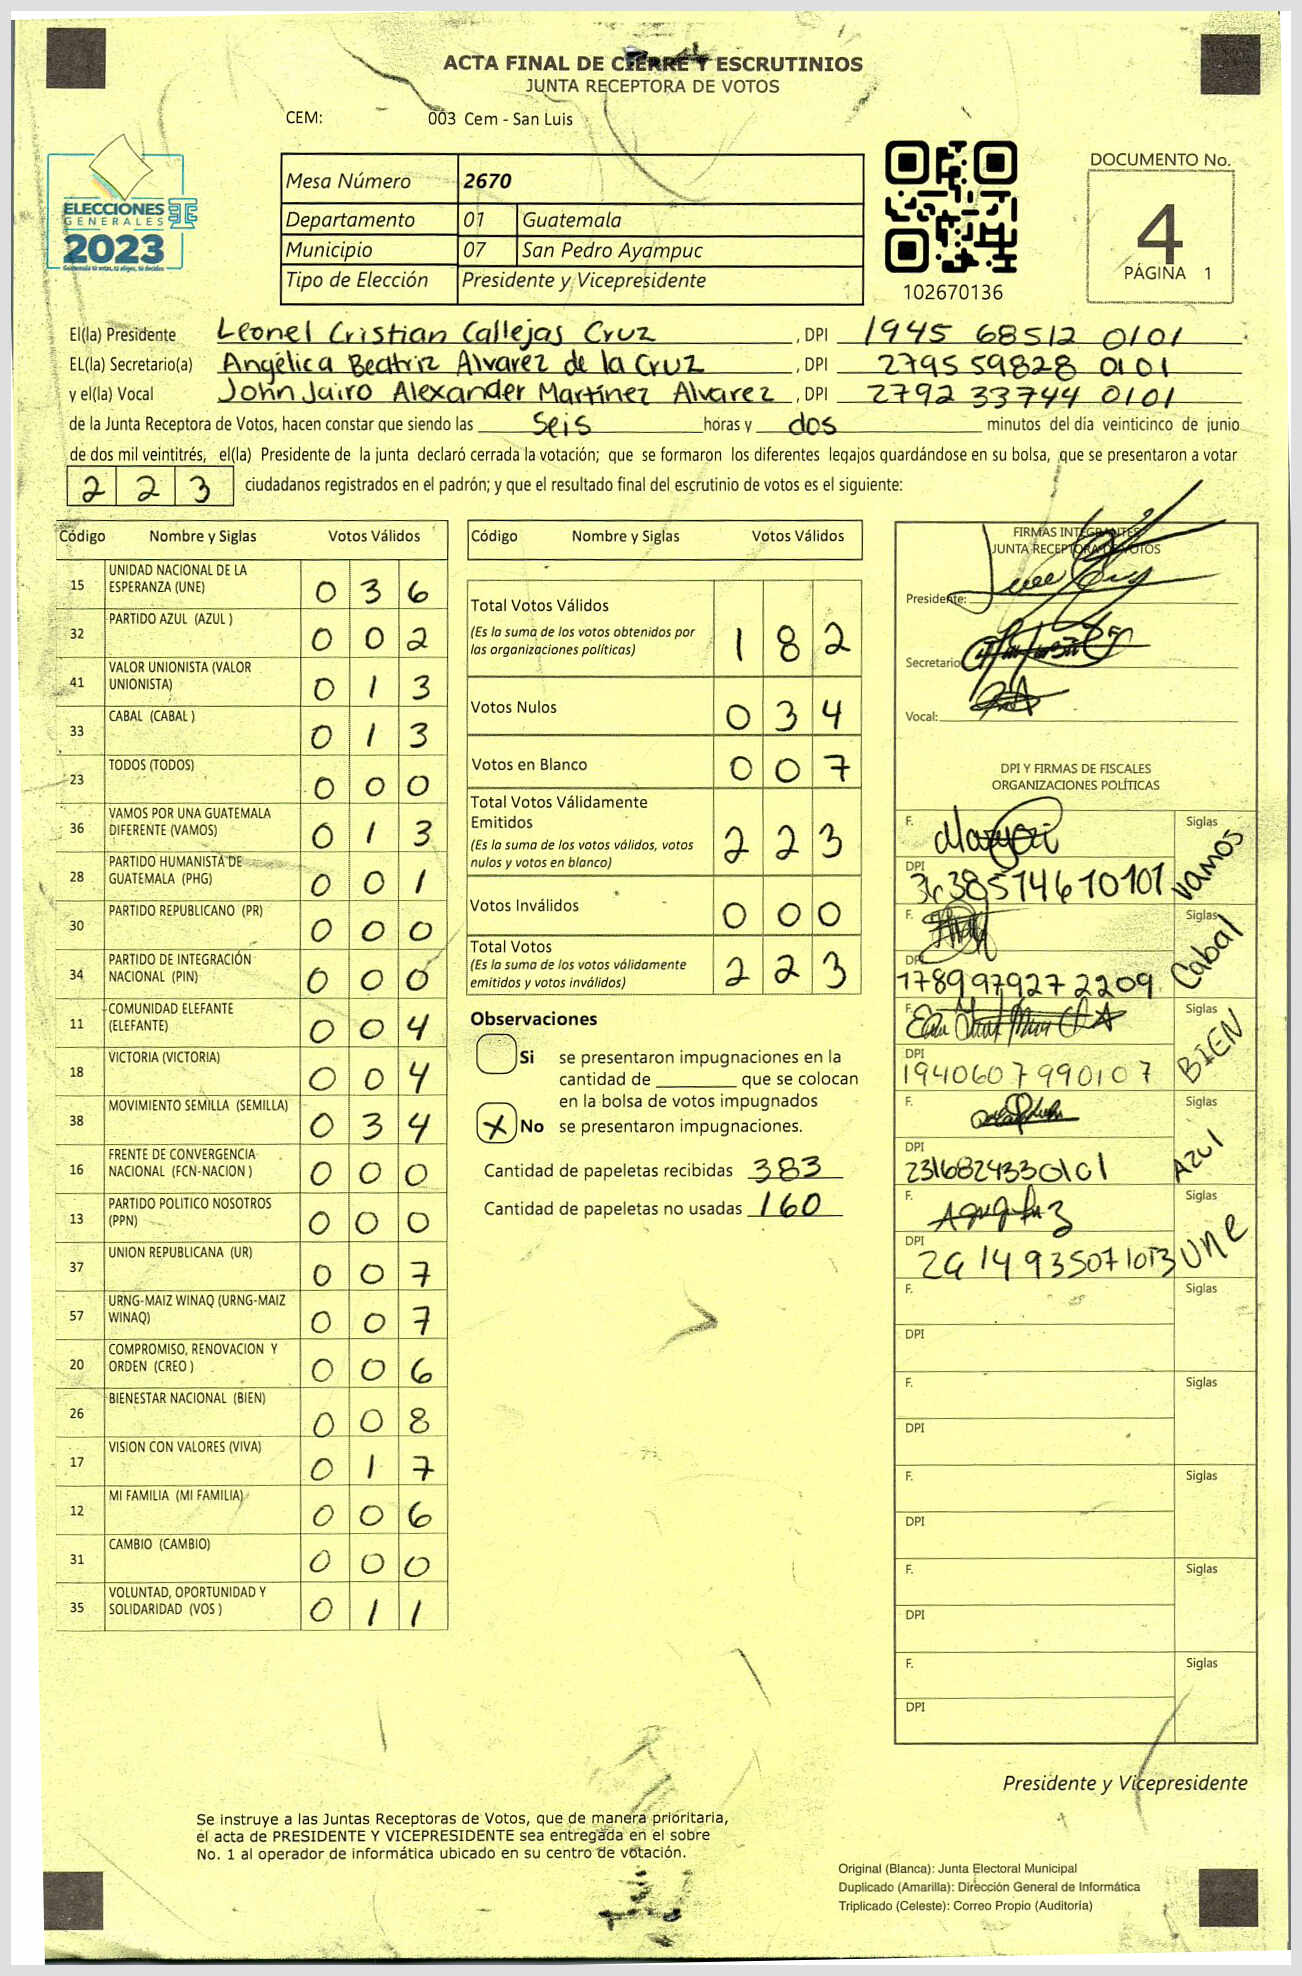 ACTA FINAL DE CIERRE Y ESCRUTINIOS
JUNTA RECEPTORA DE VOTOS
CEM: 003 Cem - San Luis
ELECCIONES
GENERALES
2023
Guatemala tú votas, tú eliges, tú decides
Mesa Número 2670
Departamento 01 Guatemala
Municipio 07 San Pedro Ayampuc
Tipo de Elección Presidente y Vicepresidente
102670136
DOCUMENTO No.
4
PÁGINA 1
El(la) Presidente Leonel Cristian Callejas Cruz , DPI 1945 68512 0101
EL(la) Secretario(a) Angélica Beatriz Alvarez de la Cruz , DPI 2795 59828 0101
y el(la) Vocal John Jairo Alexander Martínez Alvarez , DPI 2792 33744 0101
de la Junta Receptora de Votos, hacen constar que siendo las seis horas y dos minutos del día veinticinco de junio
de dos mil veintitrés, el(la) Presidente de la junta declaró cerrada la votación; que se formaron los diferentes legajos guardándose en su bolsa, que se presentaron a votar
2 2 3 ciudadanos registrados en el padrón; y que el resultado final del escrutinio de votos es el siguiente:
Código Nombre y Siglas Votos Válidos
15 UNIDAD NACIONAL DE LA ESPERANZA (UNE) 0 3 6
32 PARTIDO AZUL (AZUL ) 0 0 2
41 VALOR UNIONISTA (VALOR UNIONISTA) 0 1 3
33 CABAL (CABAL ) 0 1 3
23 TODOS (TODOS) 0 0 0
36 VAMOS POR UNA GUATEMALA DIFERENTE (VAMOS) 0 1 3
28 PARTIDO HUMANISTA DE GUATEMALA (PHG) 0 0 1
30 PARTIDO REPUBLICANO (PR) 0 0 0
34 PARTIDO DE INTEGRACIÓN NACIONAL (PIN) 0 0 0
11 COMUNIDAD ELEFANTE (ELEFANTE) 0 0 4
18 VICTORIA (VICTORIA) 0 0 4
38 MOVIMIENTO SEMILLA (SEMILLA) 0 3 4
16 FRENTE DE CONVERGENCIA NACIONAL (FCN-NACION ) 0 0 0
13 PARTIDO POLITICO NOSOTROS (PPN) 0 0 0
37 UNION REPUBLICANA (UR) 0 0 7
57 URNG-MAIZ WINAQ (URNG-MAIZ WINAQ) 0 0 7
20 COMPROMISO, RENOVACION Y ORDEN (CREO ) 0 0 6
26 BIENESTAR NACIONAL (BIEN) 0 0 8
17 VISION CON VALORES (VIVA) 0 1 7
12 MI FAMILIA (MI FAMILIA) 0 0 6
31 CAMBIO (CAMBIO) 0 0 0
35 VOLUNTAD, OPORTUNIDAD Y SOLIDARIDAD (VOS ) 0 1 1
Código Nombre y Siglas Votos Válidos
Total Votos Válidos
(Es la suma de los votos obtenidos por
las organizaciones políticas) 1 8 2
Votos Nulos 0 3 4
Votos en Blanco 0 0 7
Total Votos Válidamente
Emitidos
(Es la suma de los votos válidos, votos
nulos y votos en blanco) 2 2 3
Votos Inválidos 0 0 0
Total Votos
(Es la suma de los votos válidamente
emitidos y votos inválidos) 2 2 3
Observaciones
Si se presentaron impugnaciones en la
cantidad de ________ que se colocan
en la bolsa de votos impugnados
X No se presentaron impugnaciones.
Cantidad de papeletas recibidas 383
Cantidad de papeletas no usadas 160
FIRMAS INTEGRANTES
JUNTA RECEPTORA DE VOTOS
Presidente:
Secretario
Vocal:
DPI Y FIRMAS DE FISCALES
ORGANIZACIONES POLÍTICAS
F. Siglas
DPI Vamos
F. Siglas
DPI 1789 97927 2209 Cabal
F. Siglas
DPI 1940607990107 BIEN
F. Siglas
DPI 2316824330101 AZUL
F. Siglas
DPI UNE
F. Siglas
DPI
F. Siglas
DPI
F. Siglas
DPI
F. Siglas
DPI
F. Siglas
DPI
Presidente y Vicepresidente
Se instruye a las Juntas Receptoras de Votos, que de manera prioritaria,
el acta de PRESIDENTE Y VICEPRESIDENTE sea entregada en el sobre
No. 1 al operador de informática ubicado en su centro de votación.
Original (Blanca): Junta Electoral Municipal
Duplicado (Amarilla): Dirección General de Informática
Triplicado (Celeste): Correo Propio (Auditoría)